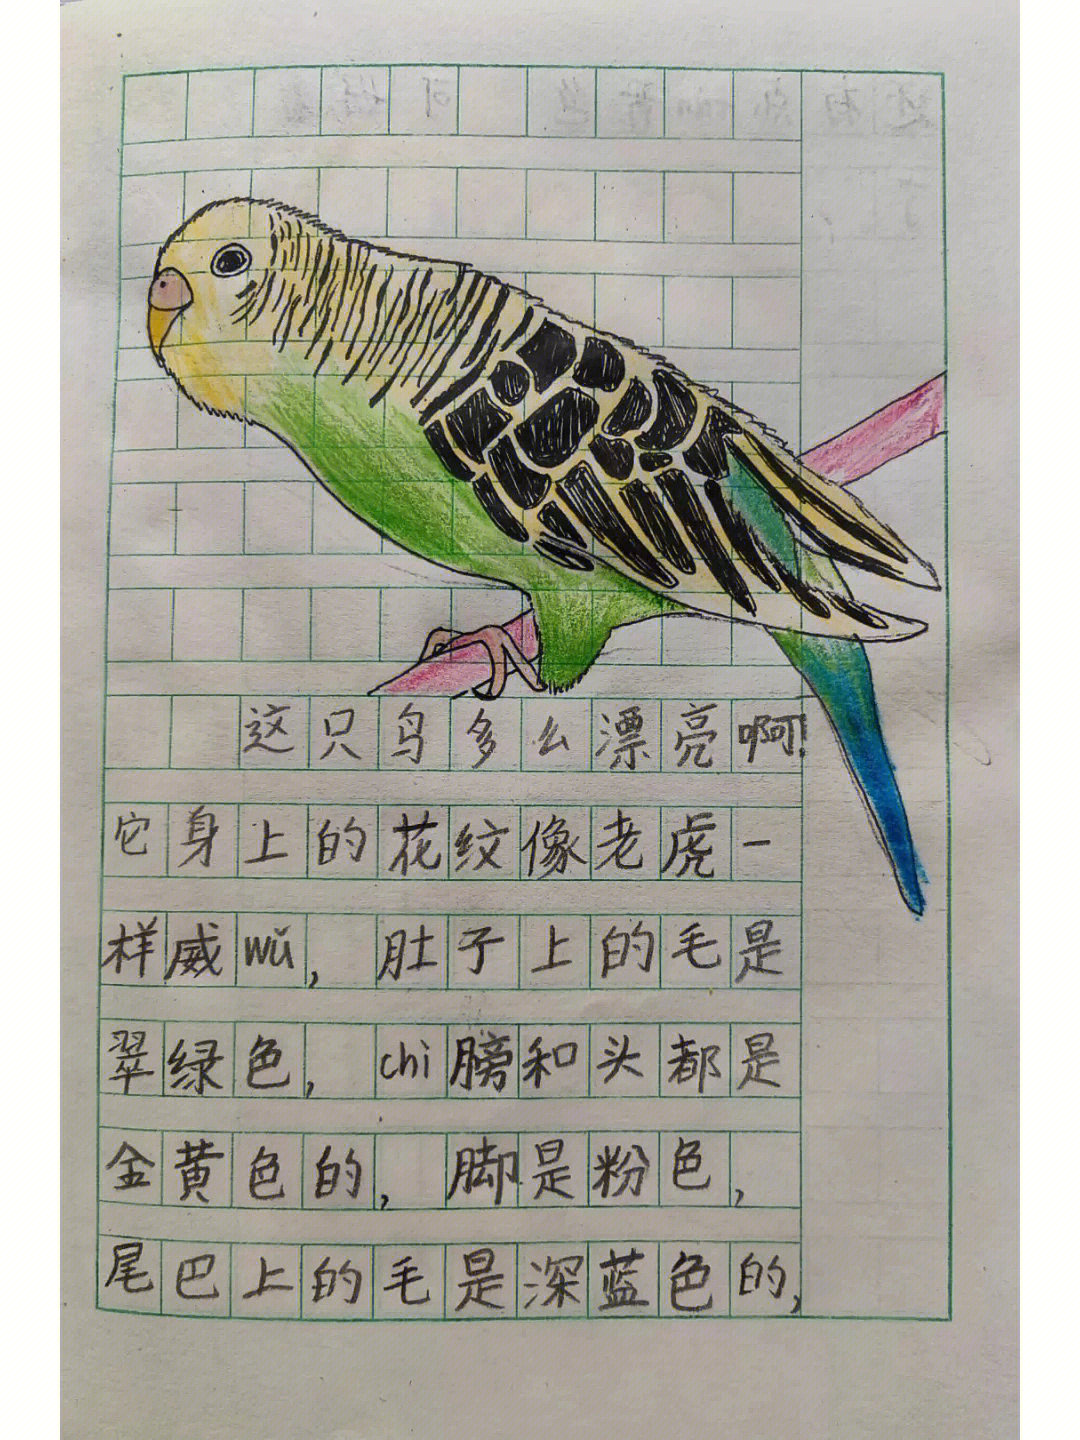 这只鸟多么漂亮啊!
它身上的花纹像老虎一
样威wǔ,肚子上的毛是
翠绿色,chì膀和头都是
金黄色的,脚是粉色,
尾巴上的毛是深蓝色的,